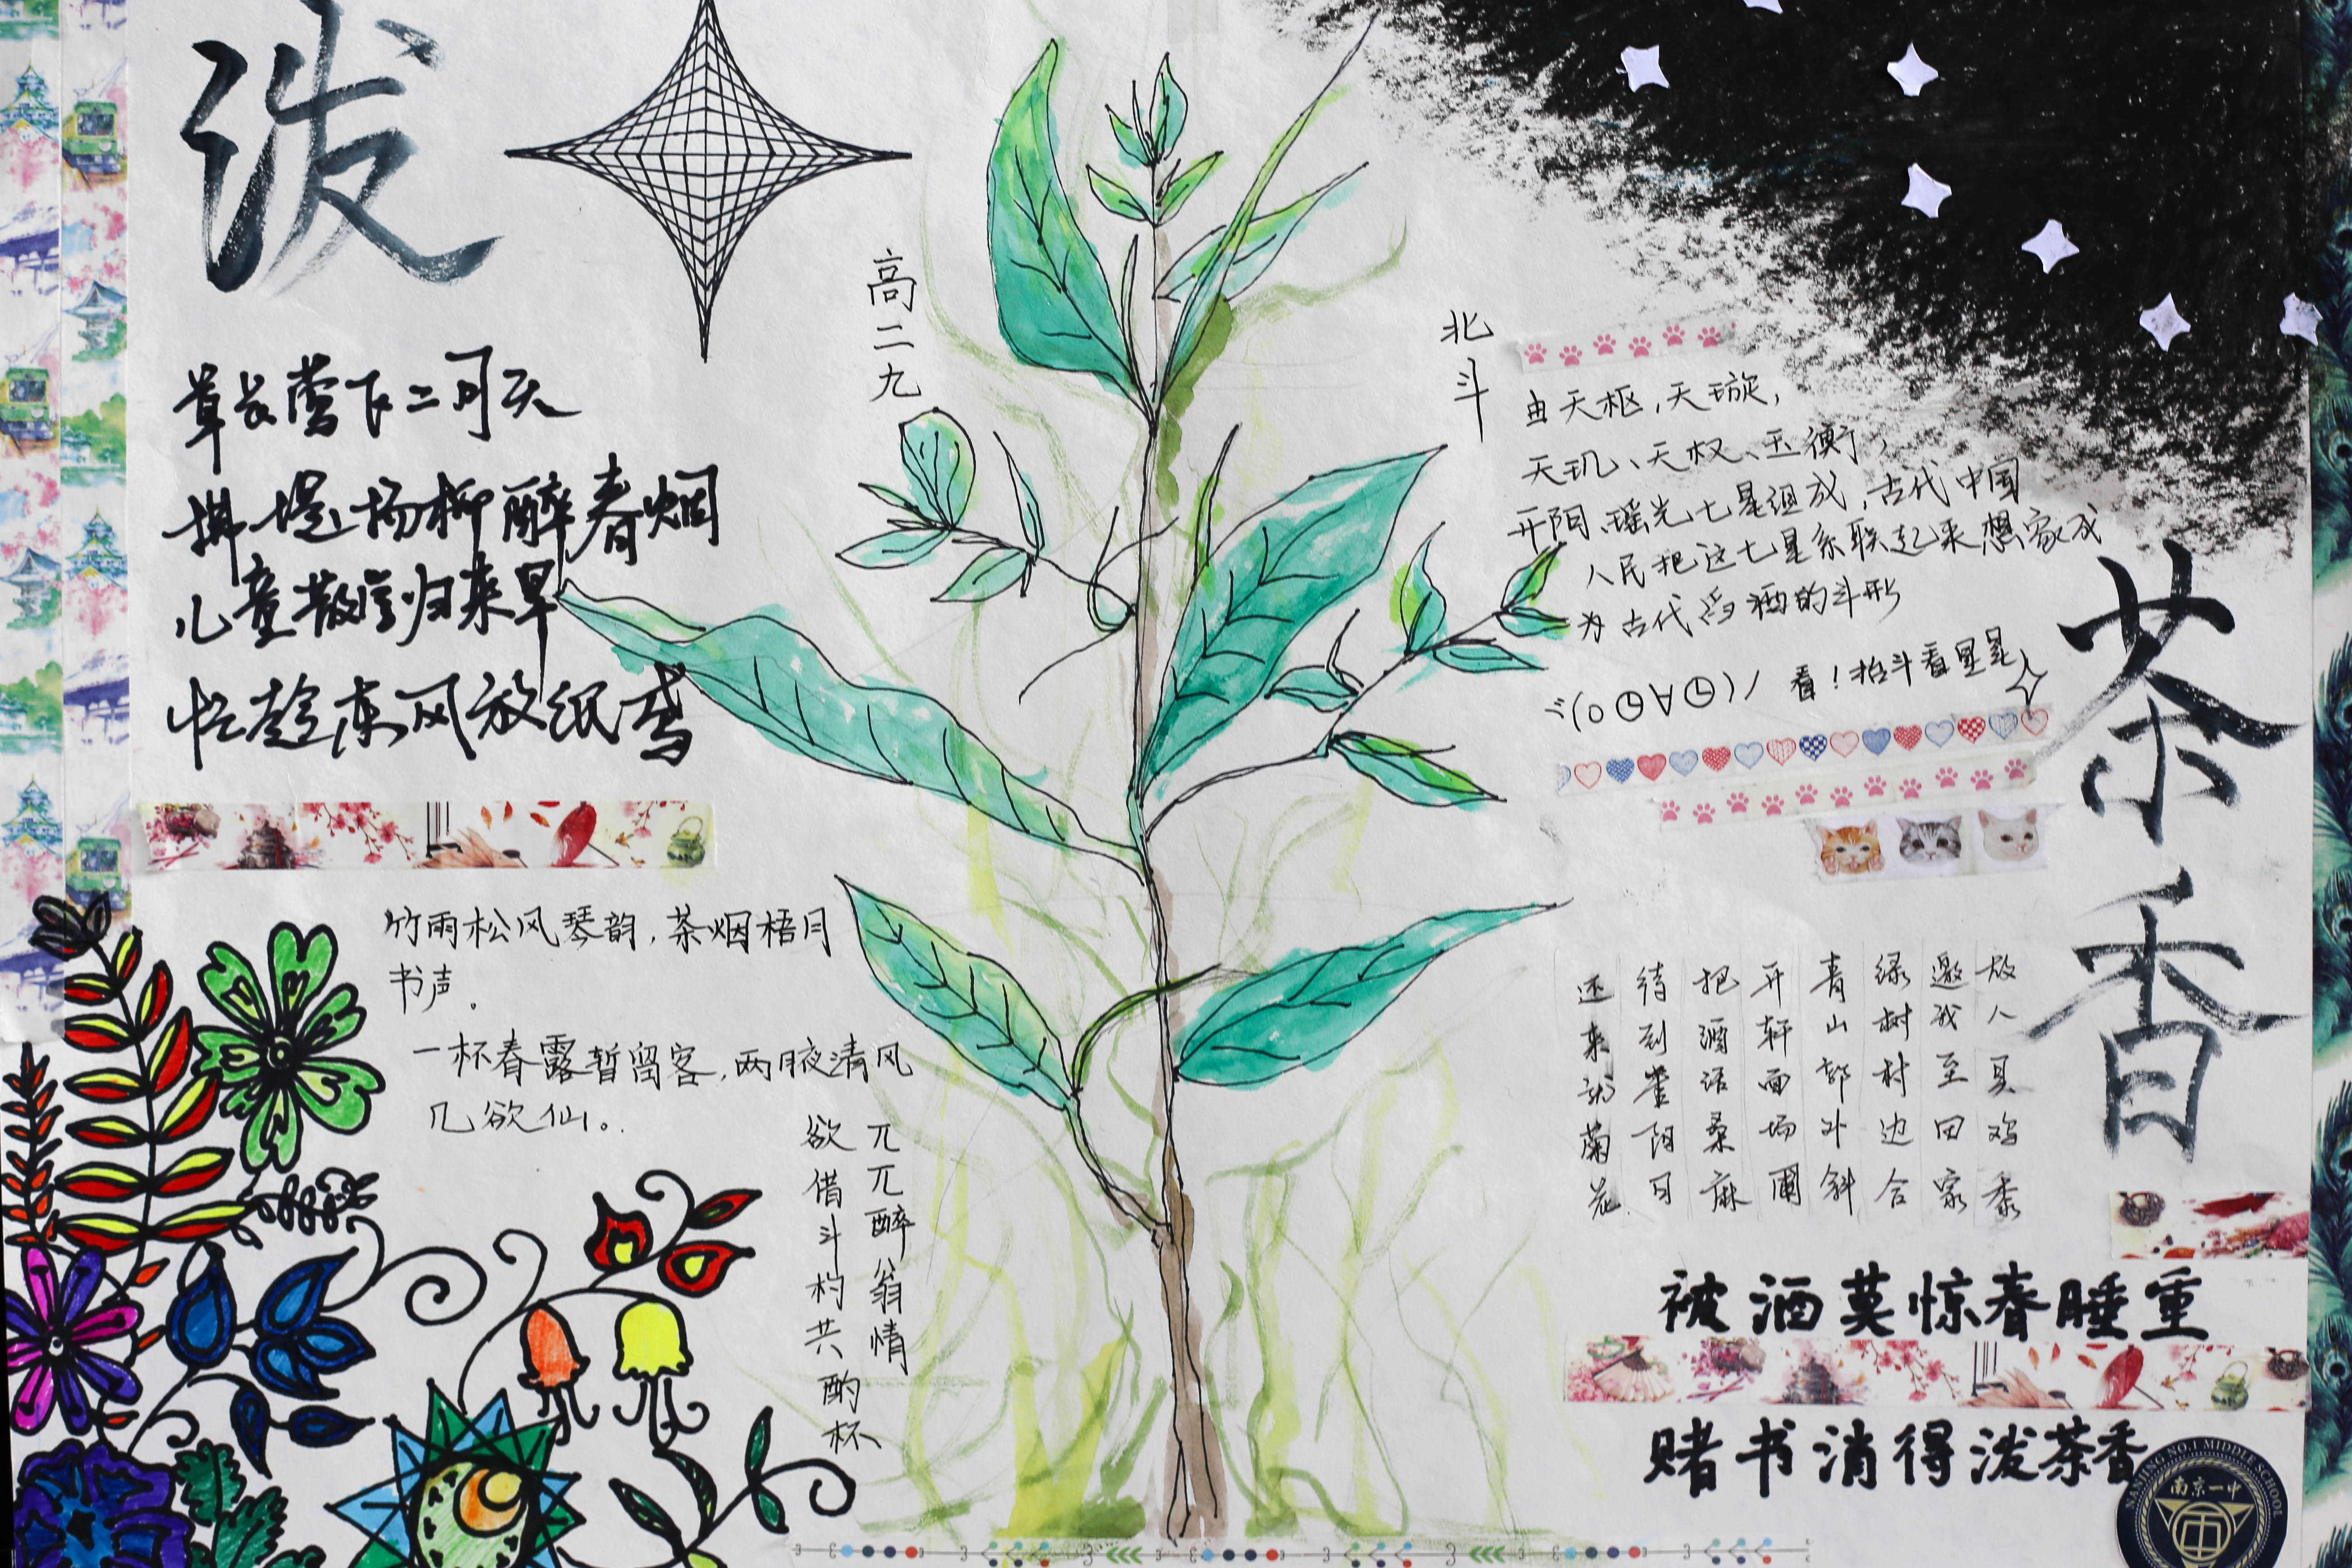 泼
茶
香
高二九
草长莺飞二月天
拂堤杨柳醉春烟
儿童散学归来早
忙趁东风放纸鸢
北斗
由天枢，天璇，
天玑、天权、玉衡，
开阳、瑶光七星组成，古代中国
人民把这七星系联起来想象成
为古代舀酒的斗形
看！抬斗看星星
竹雨松风琴韵，茶烟梧月
书声。
一杯春露暂留客，两腋清风
几欲仙。
兀兀醉翁情
欲借斗杓共酌杯
故人具鸡黍
邀我至田家
绿树村边合
青山郭外斜
开轩面场圃
把酒话桑麻
待到重阳日
还来就菊花
被酒莫惊春睡重
赌书消得泼茶香
NANJING NO.1 MIDDLE SCHOOL
南京一中